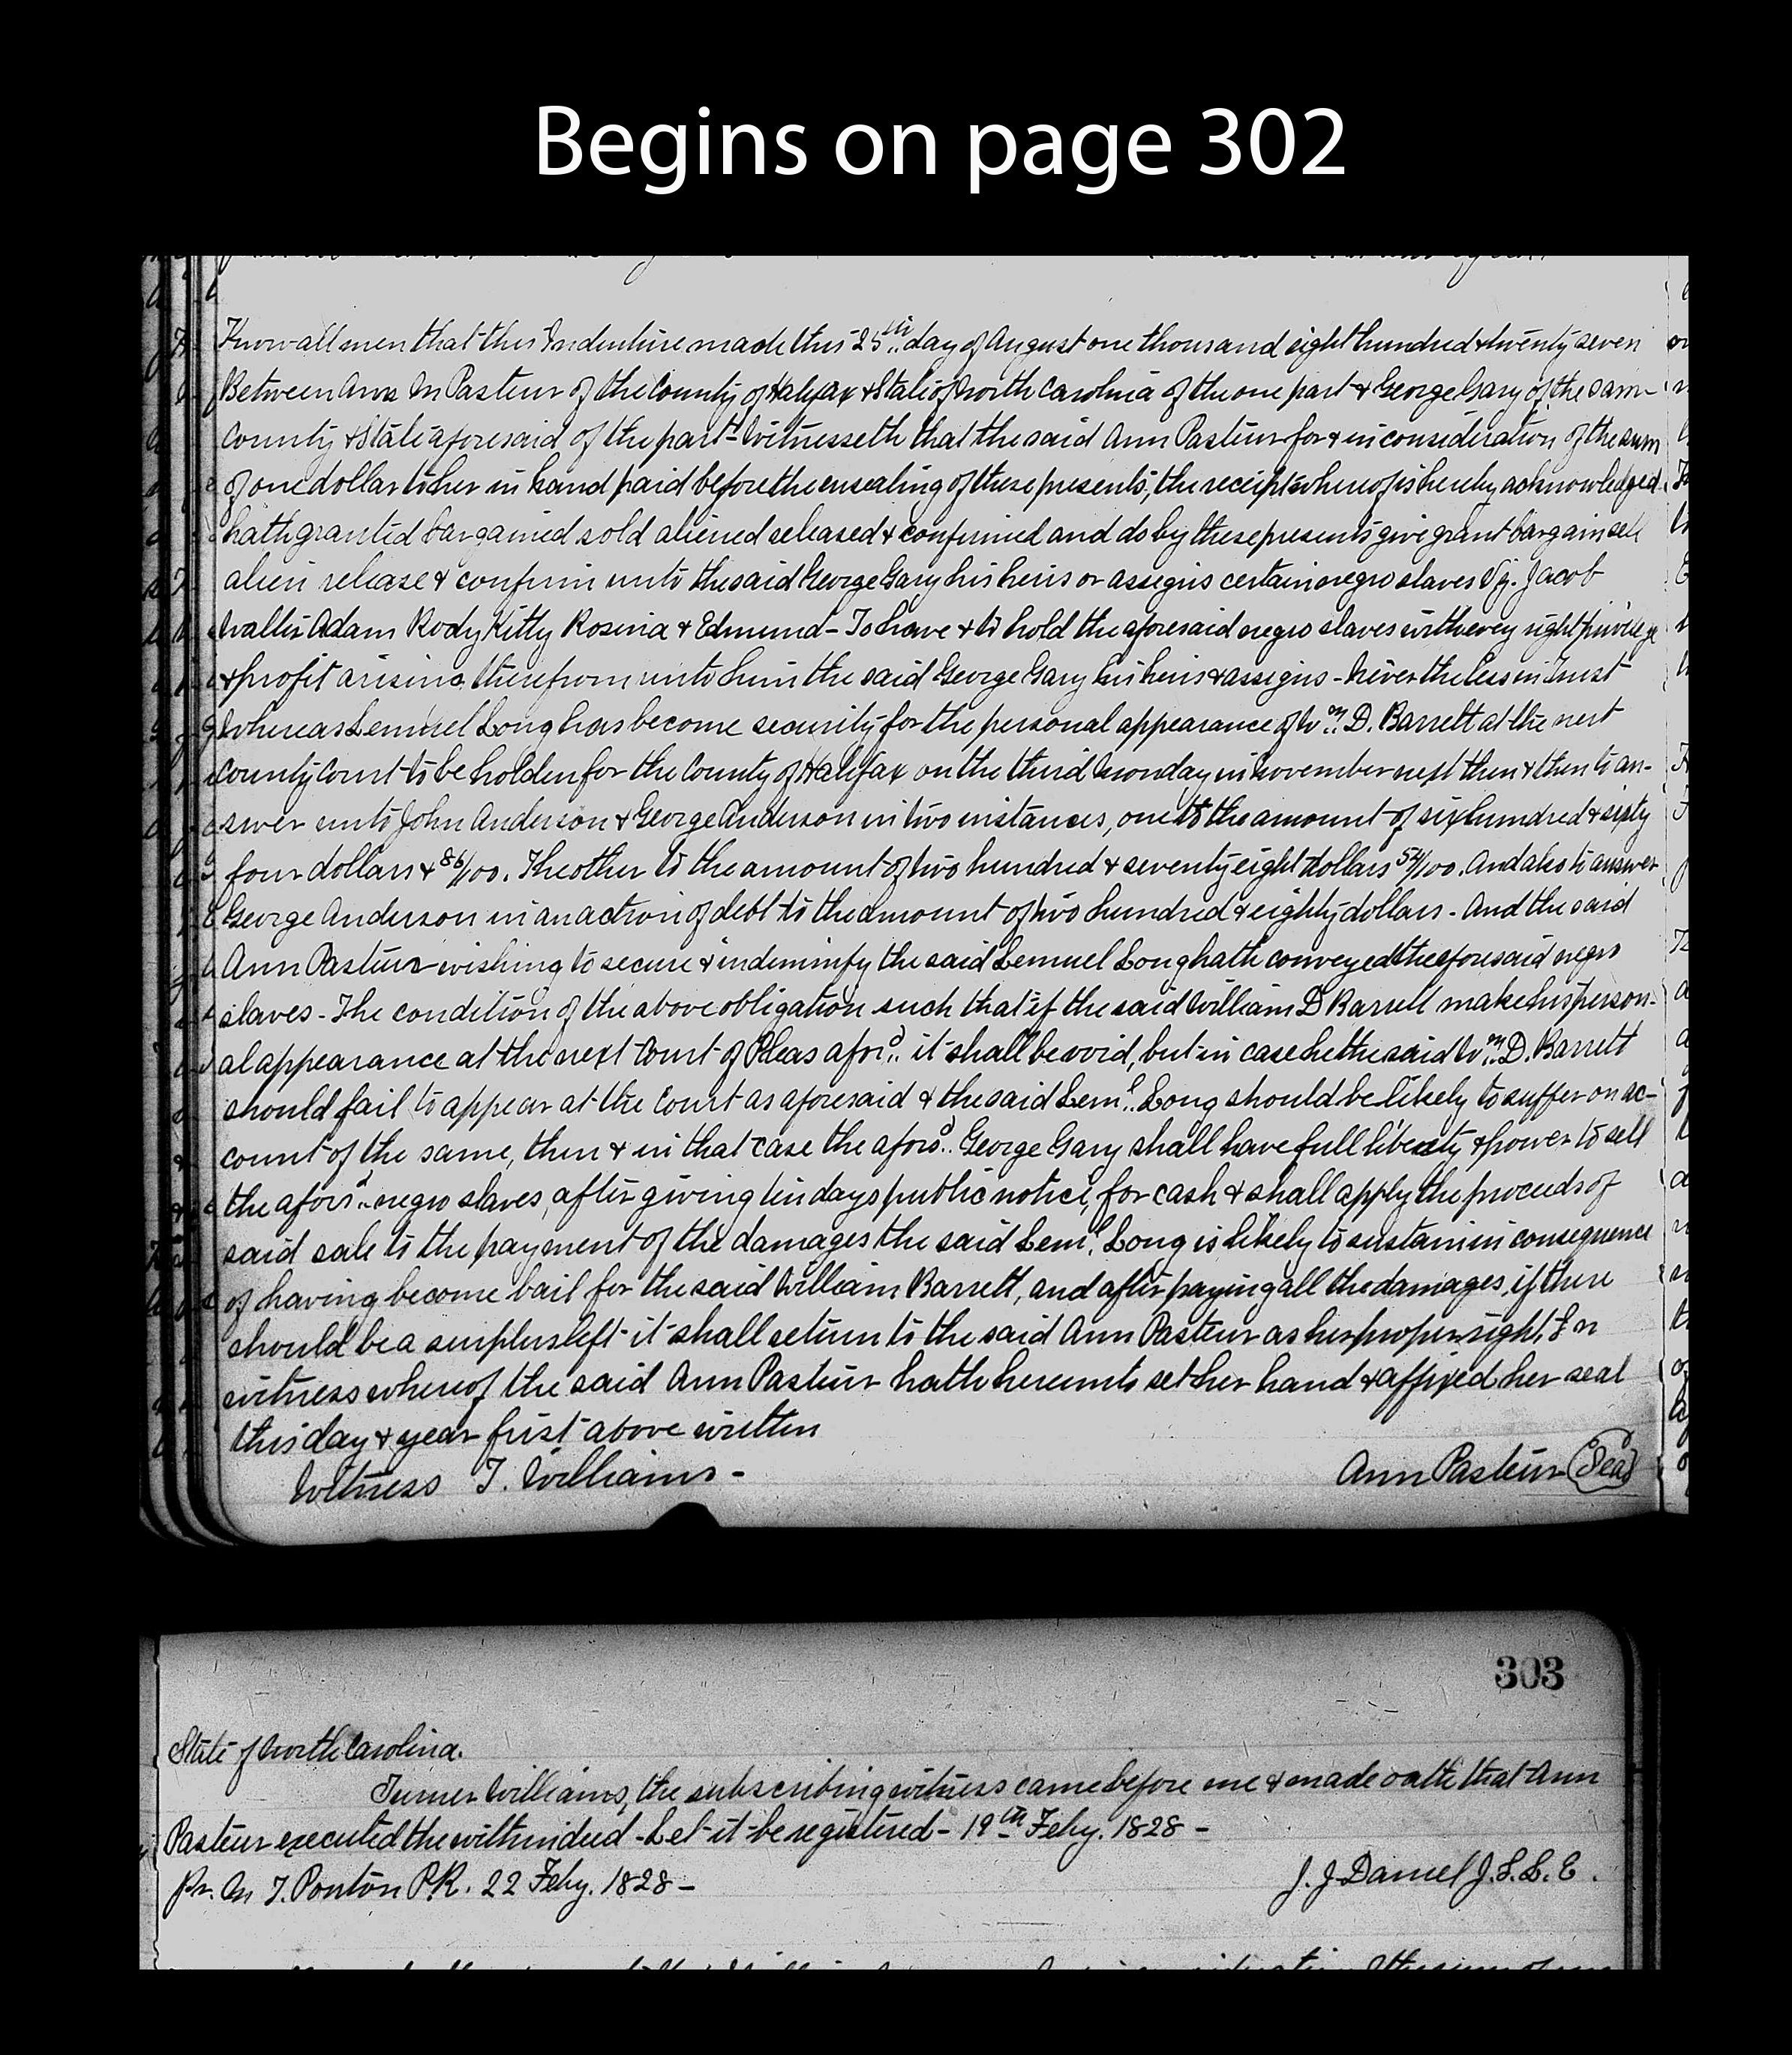 Begins on page 302
Know all men that this Indenture made this 25th day of August one thousand eight hundred & twenty seven
Between Ann M Pasteur of the County of Halifax & State of North Carolina of the one part & George Gary of the sam-
County & State aforesaid of the part - Witnesseth that the said Ann Pasteur for & in consideration of the sum
of one dollar to her in hand paid before the ensealing of these presents, the receipt whereof is hereby acknowledged
hath granted bargained sold aliened released & confirmed and do by these presents give grant bargain sell
alien release & confirm unto the said George Gary his heirs or assigns certain negro slaves Viz. Jacob
Walter Adam Rody Kitty Rosina & Edmund - To have & to hold the aforesaid negro slaves with every right privilege
& profit arising therefrom unto him the said George Gary his heirs & assigns - Nevertheless in Trust
Whereas Lemuel Long has become security for the personal appearance of Wm. D. Barrett at the next
County Court to be holden for the County of Halifax on the third Monday in November next then & then to an-
swer unto John Anderson & George Anderson in two instances, one to the amount of six hundred & sixty
four dollars & 86/100. The other to the amount of two hundred & seventy eight dollars 54/100. And also to answer
George Anderson in an action of debt to the amount of two hundred & eighty dollars - And the said
Ann Pasteur wishing to secure & indemnify the said Lemuel Long hath conveyed the aforesaid negro
slaves - The condition of the above obligation such that if the said William D Barrett make his person-
al appearance at the next Court of Pleas aforsd. it shall be void, but in case he the said Wm. D. Barrett
should fail to appear at the Court as aforesaid & the said Leml. Long should be likely to suffer on ac-
count of the same, then & in that case the aforsd. George Gary shall have full liberty & power to sell
the aforsd. negro slaves, after giving ten days public notice, for cash & shall apply the proceeds of
said sale to the payment of the damages the said Leml. Long is likely to sustain in consequence
of having become bail for the said William Barrett, and after paying all the damages, if there
should be a surplus left it shall return to the said Ann Pasteur as her proper right, In
witness whereof the said Ann Pasteur hath hereunto set her hand & affixed her seal
this day & year first above written
Witness T. Williams - Ann Pasteur (Seal)
303
State of North Carolina.
Turner Williams, the subscribing witness came before me & made oath that Ann
Pasteur executed the within deed - Let it be registered - 19th Feby. 1828 -
Pr. M T. Ponton P.R. 22 Feby. 1828 - J. J. Daniel J.S.L.E.